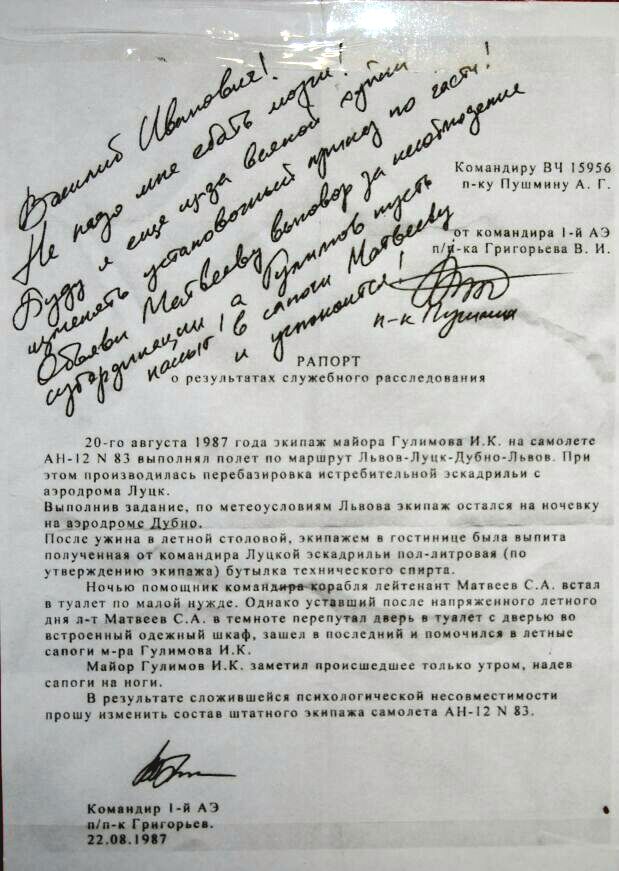 Василий Иванович!
Не надо мне ебать мозги!
Буду я еще из-за всякой хуйни
изменять установочный приказ по части!
Объяви Матвееву выговор за несоблюдение
субординации, а Гулимов пусть
нассыт в сапоги Матвееву
и успокоится!
п-к Пушмин
Командиру ВЧ 15956
п-ку Пушмину А. Г.
от командира 1-й АЭ
п/п-ка Григорьева В. И.
РАПОРТ
о результатах служебного расследования
20-го августа 1987 года экипаж майора Гулимова И.К. на самолете
АН-12 N 83 выполнял полет по маршрут Львов-Луцк-Дубно-Львов. При
этом производилась перебазировка истребительной эскадрильи с
аэродрома Луцк.
Выполнив задание, по метеоусловиям Львова экипаж остался на ночевку
на аэродроме Дубно.
После ужина в летной столовой, экипажем в гостинице была выпита
полученная от командира Луцкой эскадрильи пол-литровая (по
утверждению экипажа) бутылка технического спирта.
Ночью помощник командира корабля лейтенант Матвеев С.А. встал
в туалет по малой нужде. Однако уставший после напряженного летного
дня л-т Матвеев С.А. в темноте перепутал дверь в туалет с дверью во
встроенный одежный шкаф, зашел в последний и помочился в летные
сапоги м-ра Гулимова И.К.
Майор Гулимов И.К. заметил происшедшее только утром, надев
сапоги на ноги.
В результате сложившейся психологической несовместимости
прошу изменить состав штатного экипажа самолета АН-12 N 83.
Командир 1-й АЭ
п/п-к Григорьев.
22.08.1987